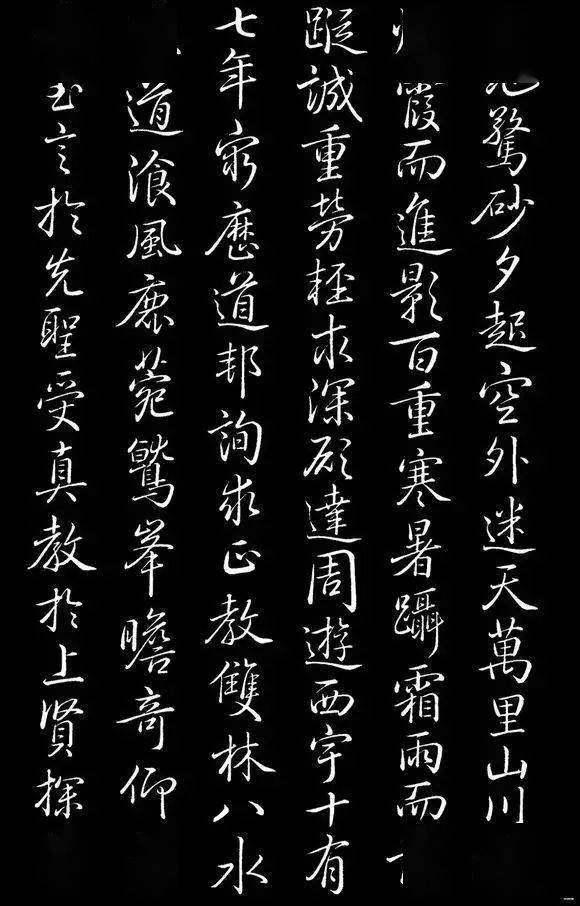 驚砂夕起空外迷天萬里山川
霞而進影百重寒暑躡霜雨而
蹤誠重勞輕求深願達周遊西宇十有
七年窮歷道邦詢求正教雙林八水
道飡風鹿菀鷲峯瞻奇仰
至言於先聖受真教於上賢探